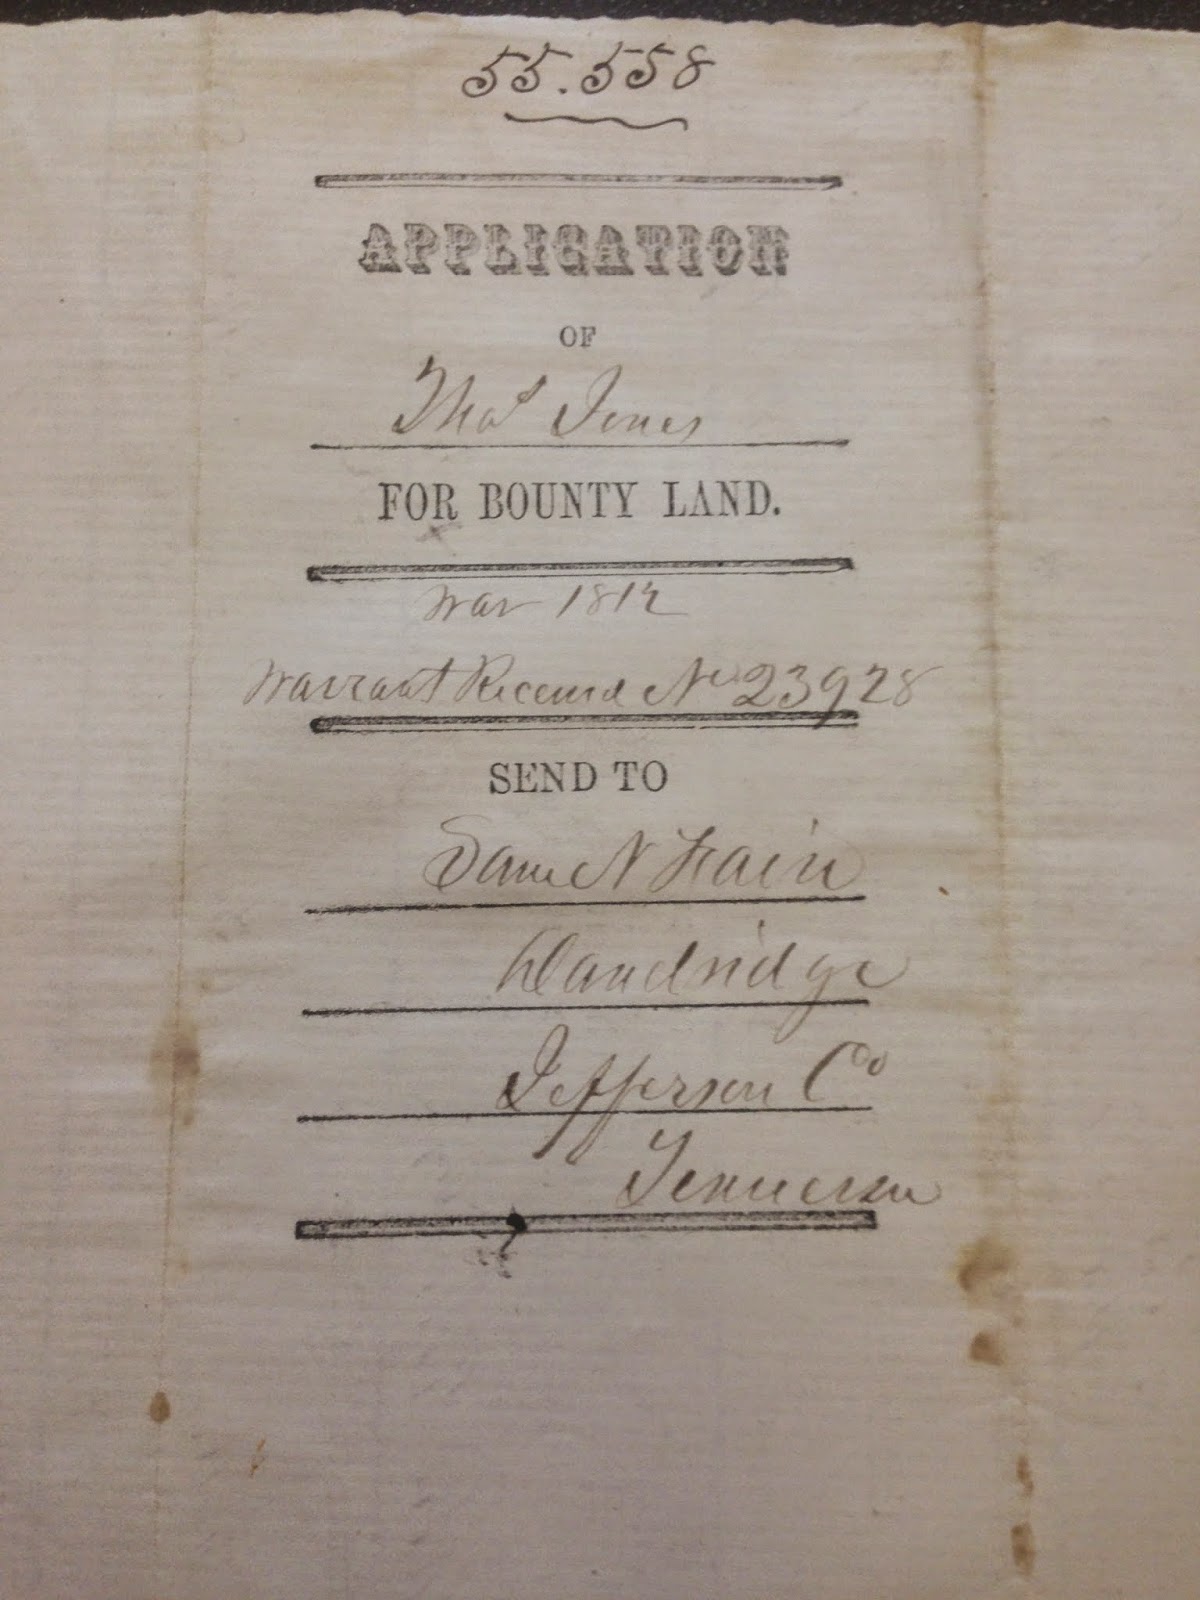 55.558
APPLICATION
OF
Thos Jones
FOR BOUNTY LAND.
War 1812
Warrant Received No 23928
SEND TO
Sam N Fain
Dandridge
Jefferson Co
Tennessee